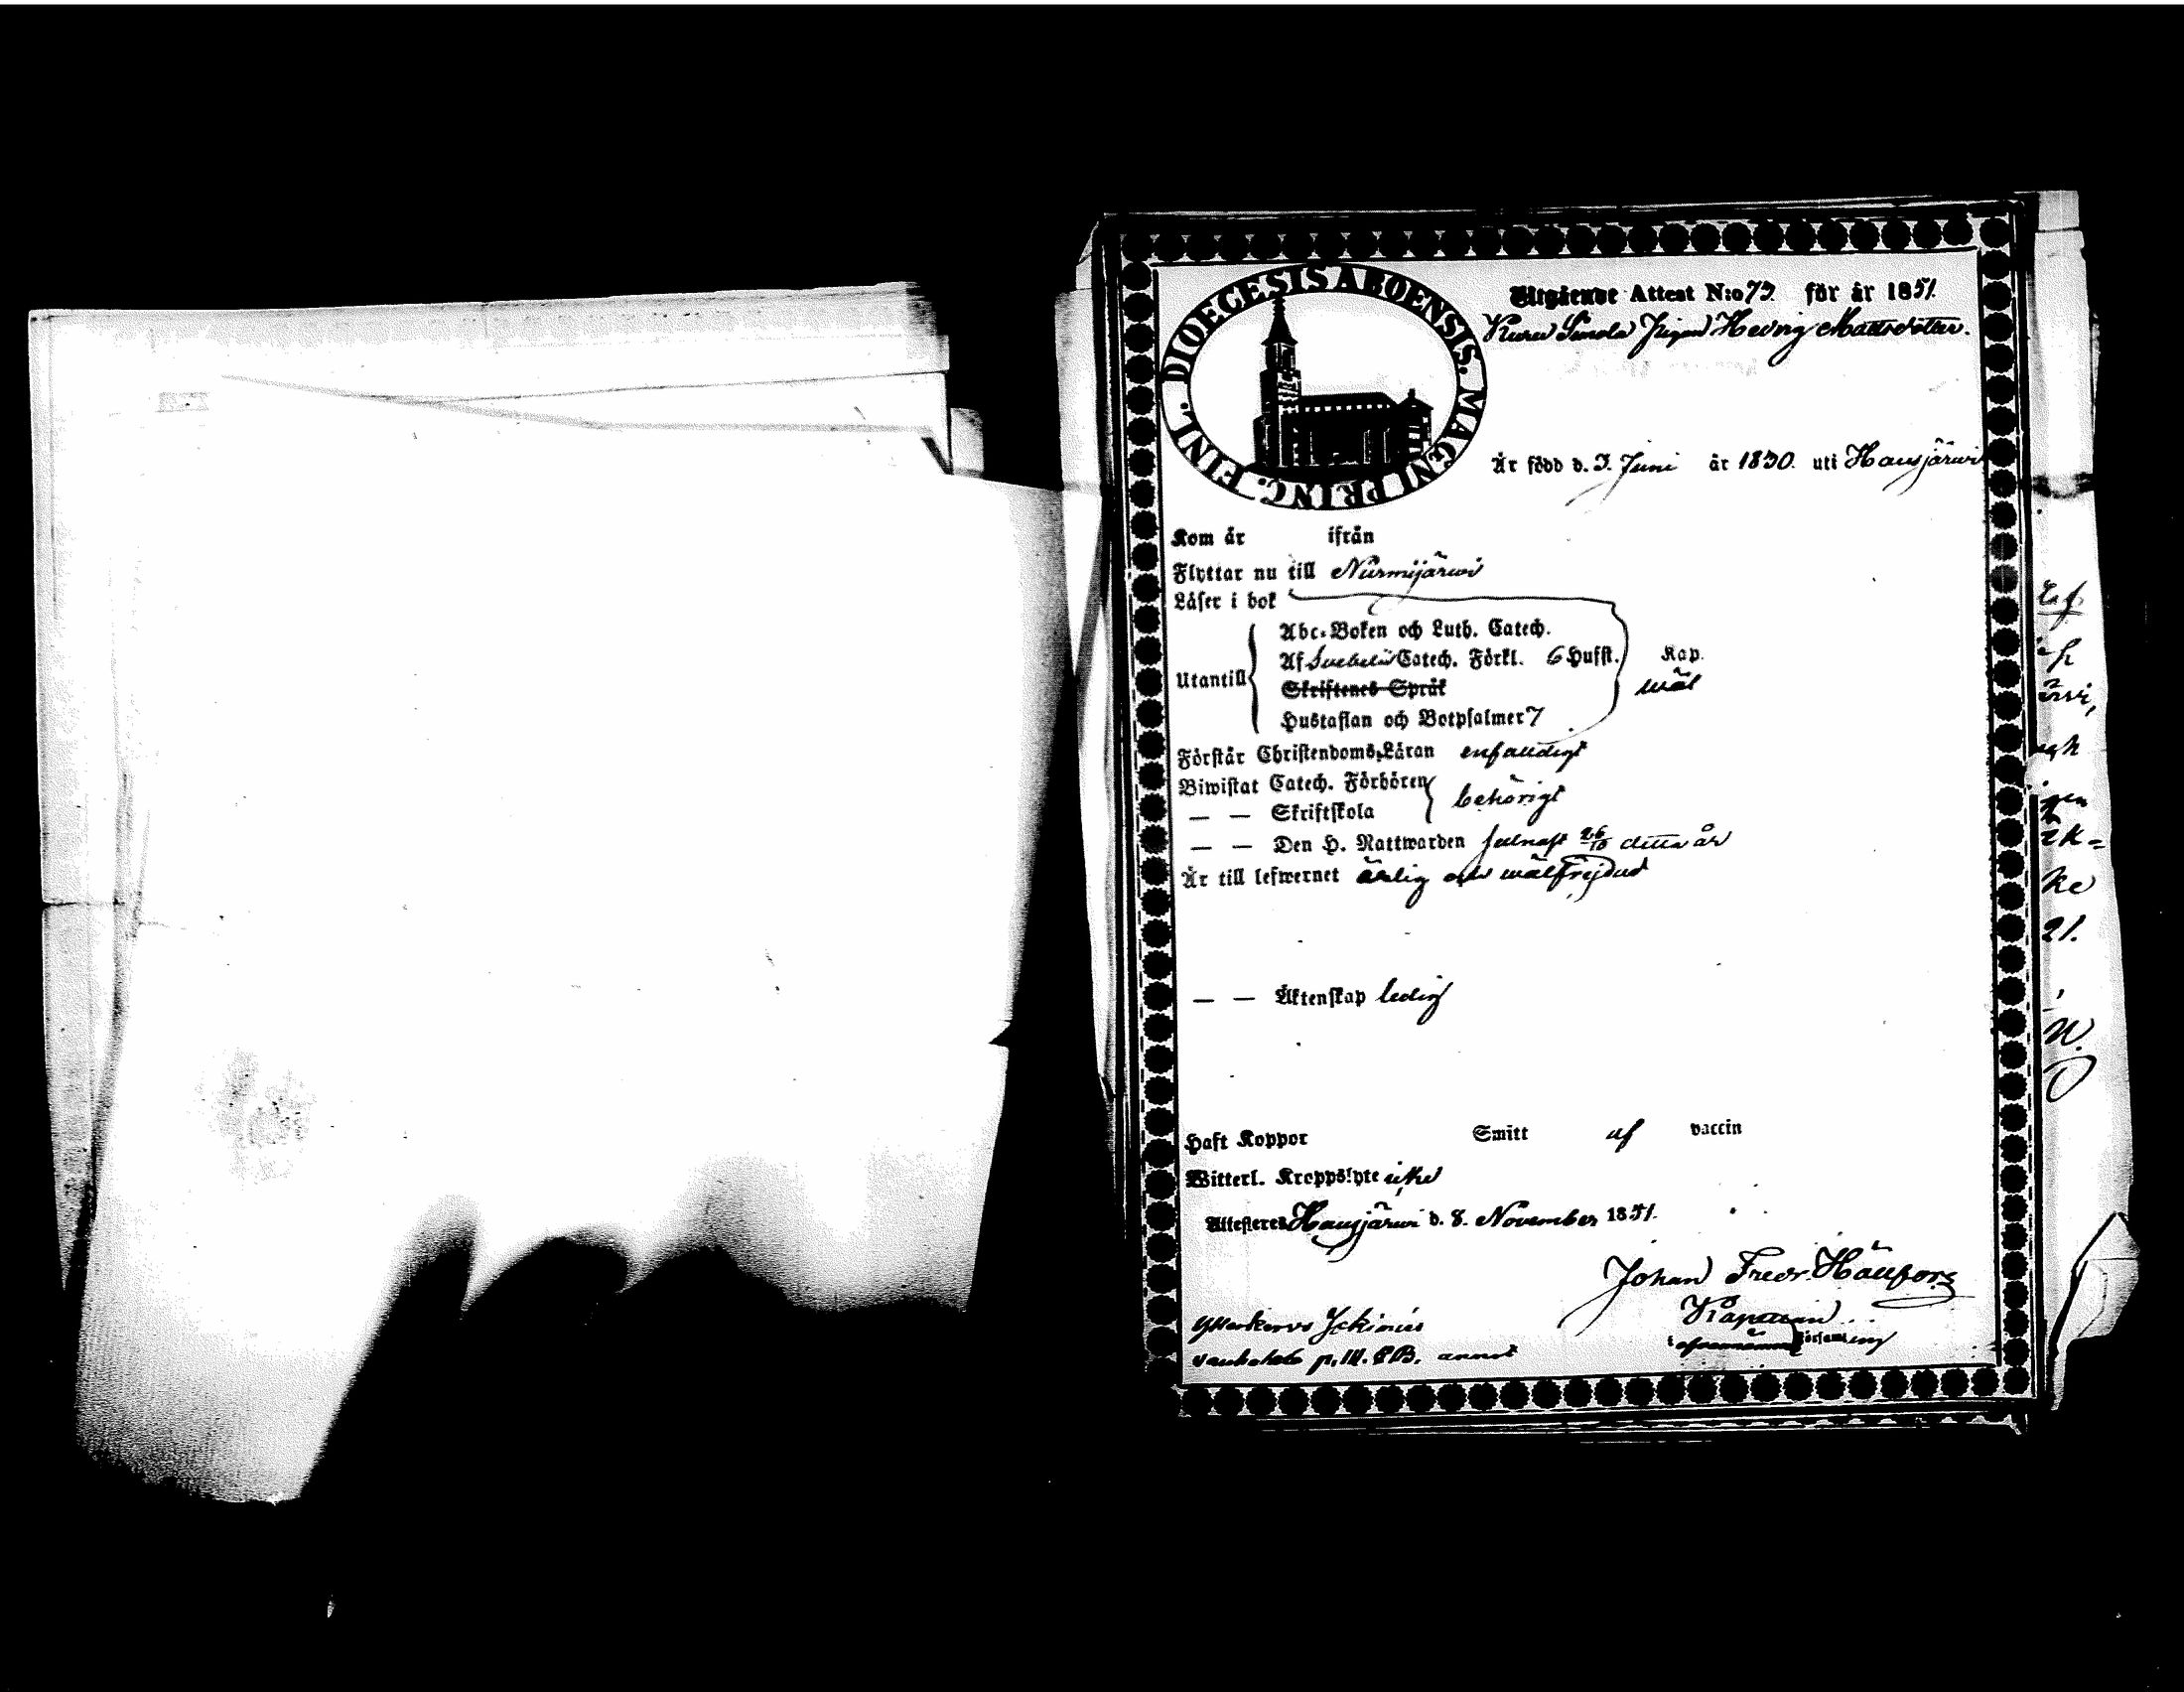 DIOECESIS ABOENSIS. MAGNI PRINC. FINL.
Utgående Attest N:o 73. för år 1851.
Hedvig Mattsdotter.
Är född d. 3. Juni år 1830. uti Hausjärwi
Kom år ifrån
Flyttar nu till Nurmijärwi
Läser i bok
Utantill
Abc-Boken och Luth. Catech.
Af Svebelii Catech. Förkl. 6 Hufst. Kap.
Skriftenes Språk
wäl
Hustaflan och Botpsalmer 7
Förstår Christendoms-Läran enfaldigt
Biwistat Catech. Förhören
behörigt
— — Skriftskola
— — Den H. Nattwarden sednast 26/10 detta år
Är till lefwernet ärlig och wälfrejdad
— — Äktenskap ledig
Haft Koppor Smitt af vaccin
Witterl. Kroppslyte icke
Attesteres Hausjärwi d. 8. November 1851.
Johan Fredr.
Kaplan
p. 111.